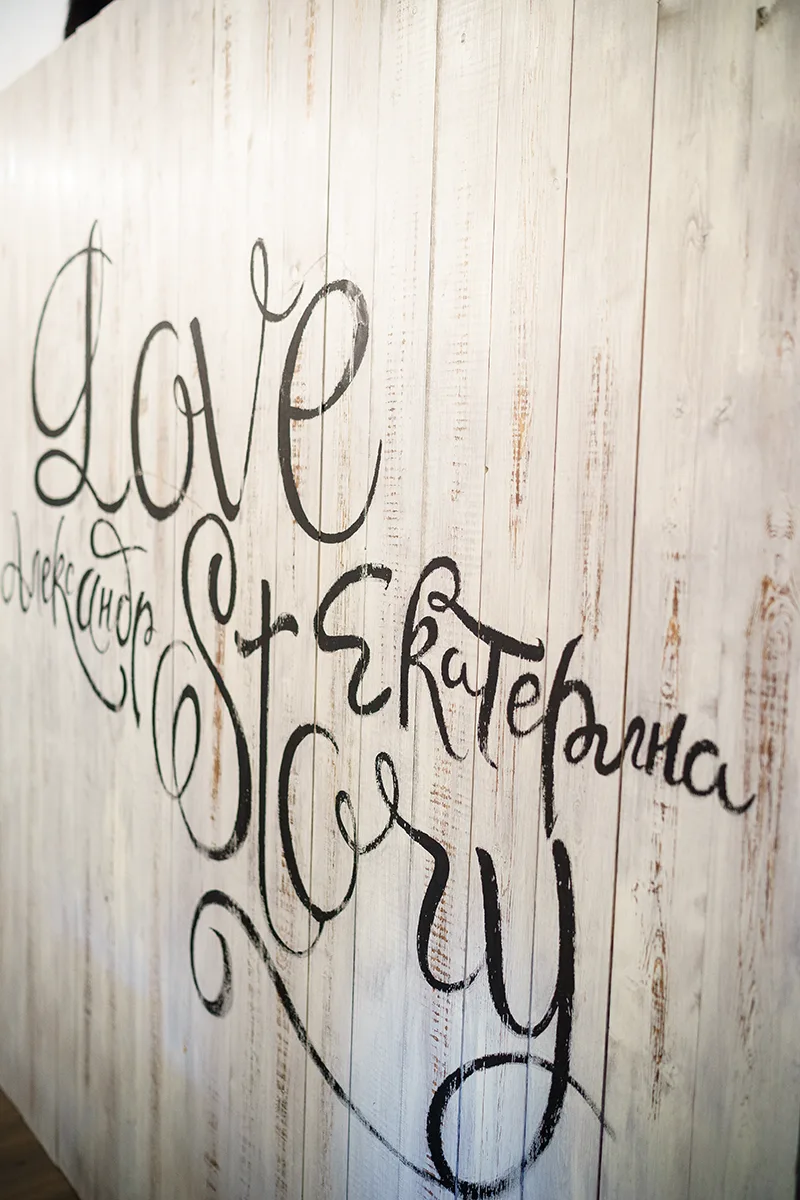 Love
Александр
Story
Екатерина